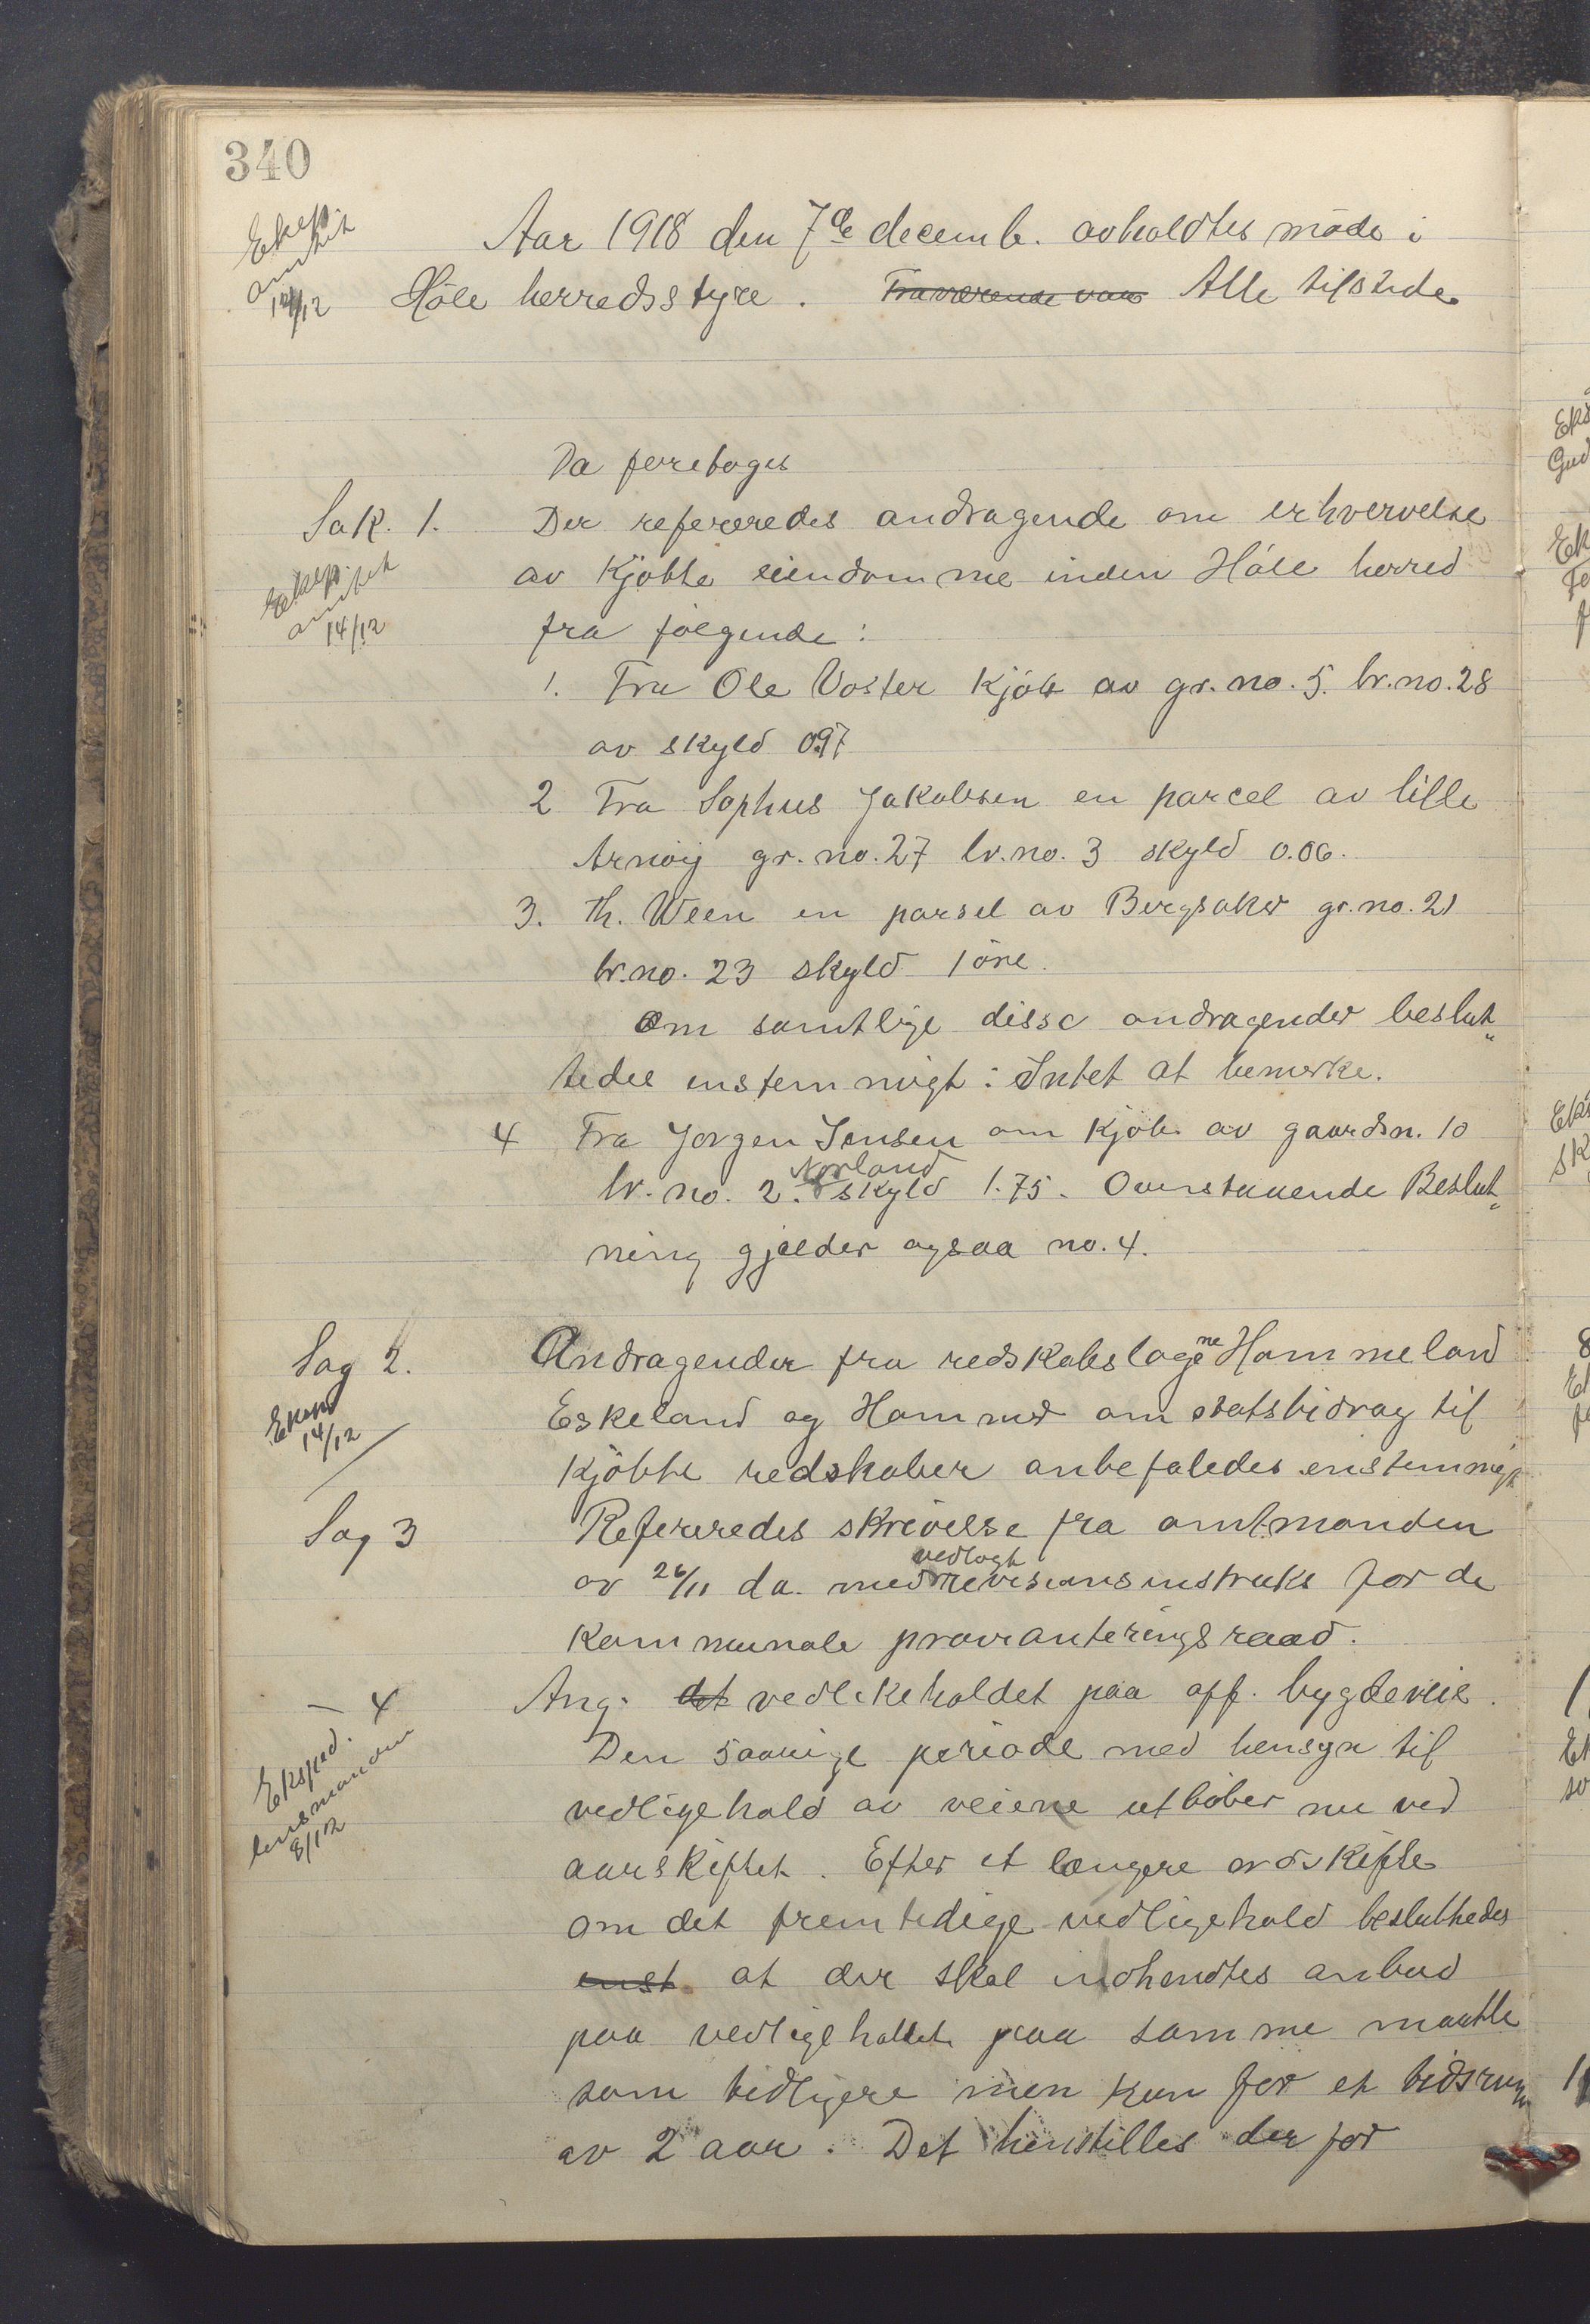 340
Eksp.
amtet
14/12
Aar 1918 den 7de decemb. avholdtes möde i
Höle herredsstyre. Fraværende var Alle tilstede
Da foretoges
Sak. 1.
Der refereredes andragende om erhvervelse
av kjöbte eiendomme inden Höle herred
Eksp.
amtet
14/12
fra fölgende:
1. Fra Ole Voster kjöb av gr. no. 5. br. no. 28
av skyld 0.97
2 Fra Sophus Jakobsen en parcel av lille
Arnöy gr. no. 27 br. no. 3 skyld 0.06.
3. Th. Ween en parsel av Bergsaker gr. no. 21
br. no. 23 skyld 1 öre.
Om samtlige disse andragender beslut„
tedes enstemmigt: Intet at bemerke.
4 Fra Jorgen Jensen om kjöb av gaardsn. 10
br. no. 2. Norland skyld 1.75. Ovenstaaende Beslut„
ning gjælder ogsaa no. 4.
Sag 2.
Andragender fra redskabslagene Hommeland
Eksp
14/12
Eskeland og Hammer om statsbidrag til
kjöbte redskaber anbefaledes enstemmigt
Sag 3
Refereredes skrivelse fra amtmanden
av 26/11 d.a. med vedlagt revisionsinstruks for de
kommunale provianteringsraad.
— 4
Ang. det vedlikeholdet paa off. bygdeveie.
Eksped.
lensmanden
8/12
Den 5aarige periode med hensyn til
vedligehold av veiene utlöber nu ved
aarskiftet. Efter et længere ordskifte
om det fremtidige vedligehold besluttedes
enst at der skal indhendtes anbud
paa vedligeholdet paa samme maatte
som tidligere men kun for et tidsrum
av 2 aar. Det henstilles der for